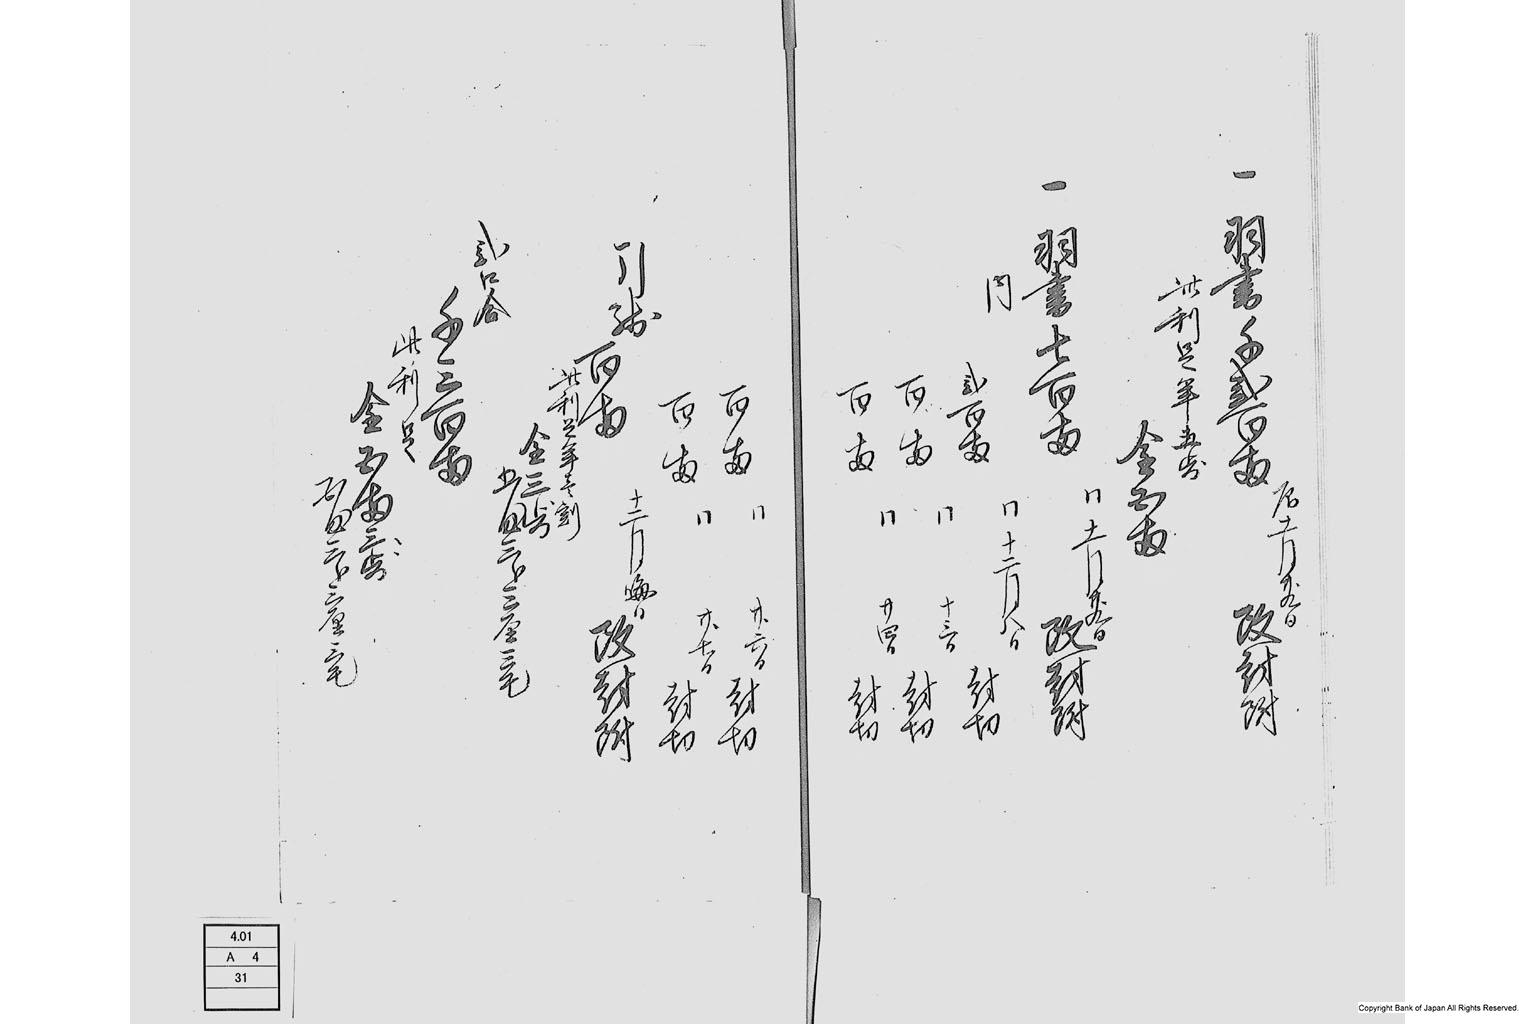 一 羽書千貳百両
辰十一月廿九日
改封附
此利足年五歩
金五両
一 羽書七百両
同十一月廿九日
改封附
内
貳百両 同十二月八日 封切
百両 同 十三日 封切
百両 同 廿四日 封切
百両 同 廿六日 封切
百両 同 廿七日 封切
引残 百両
十二月晦日
改封附
此利足年壱割
金三歩
五匁三分三厘三毛
貳口合
千三百両
此利足
金五両三歩
五匁三分三厘三毛
4.01
A 4
31
Copyright Bank of Japan All Rights Reserved.